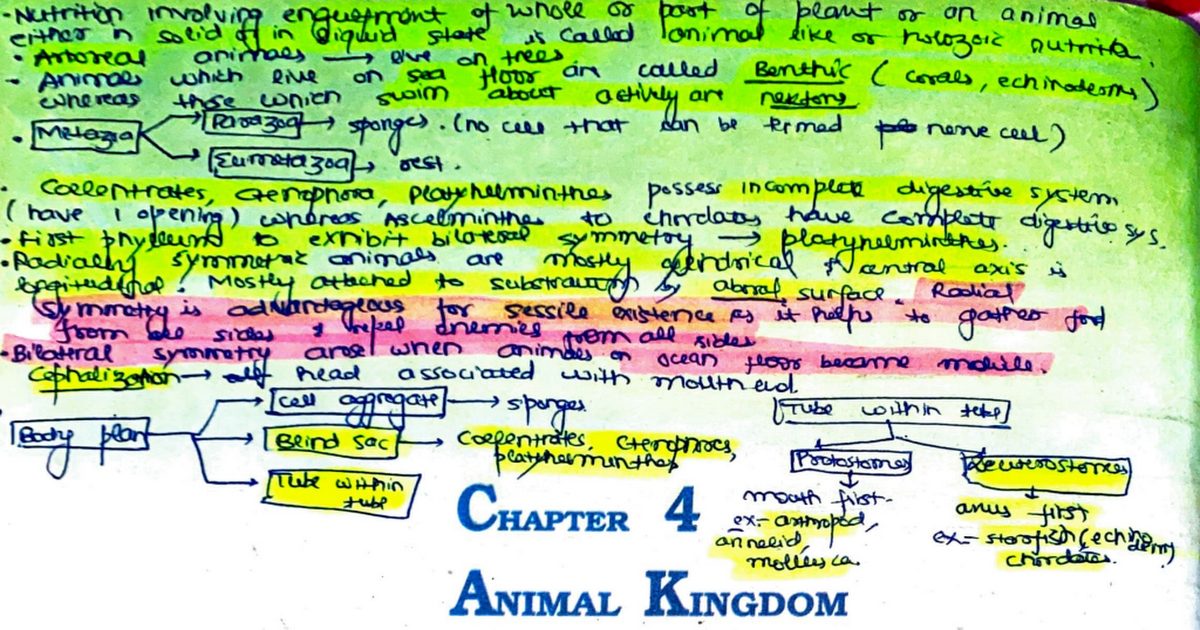 • Nutrition involving engulfment of whole or part of plant or an animal
either in solid or in liquid state is called animal like or holozoic nutritn.
• Arboreal animals → live on trees
- Animals which live on sea floor are called Benthic (corals, echinoderms)
whereas those which swim about actively are nektons
• Metazoa Parazoa → sponges. (no cell that can be termed nerve cell)
Eumetazoa → rest.
• Coelentrates, ctenophora, platyhelminthes possess incomplete digestive system
(have 1 opening) whereas Ascelminthes to chordates have complete digestive sys.
• First phyllum to exhibit bilateral symmetry → platyhelminthes.
• Radially symmetric animals are mostly cylindrical & central axis is
longitudinal. Mostly attached to substratum by aboral surface. Radial
symmetry is advantageous for sessile existence as it helps to gather food
from all sides & repel enemies from all sides
• Bilateral symmetry arose when animals on ocean floor became mobile.
Cephalization → head associated with mouth end.
Body plan
Cell aggregate → sponges
Blind sac → Coelentrates, ctenophores,
platyhelminthes
Tube within
tube
Tube within tube
Protostomes
mouth first-
ex- arthropod,
annelid,
mollusca.
Deuterostomes
anus first
ex- starfish (echinoderm)
chordates.
CHAPTER 4
ANIMAL KINGDOM